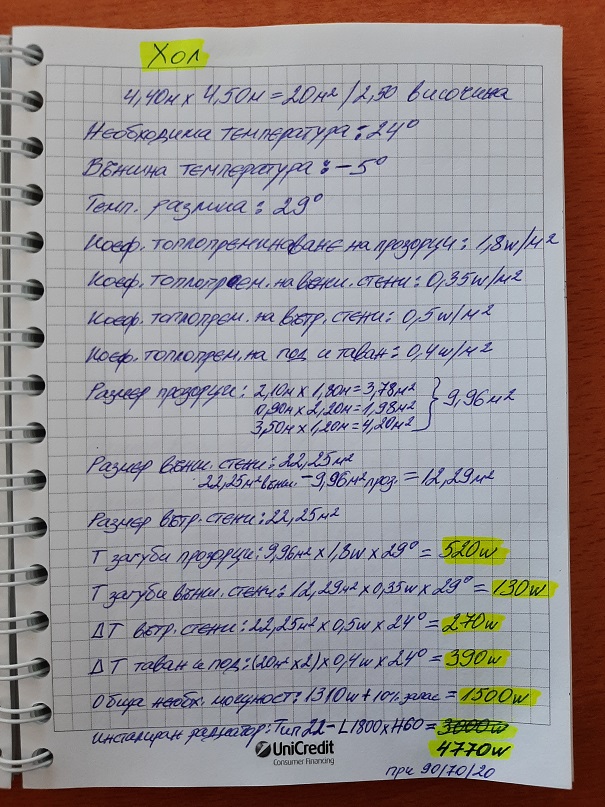 Хол
4,40м x 4,50м = 20м² / 2,50 височина
Необходима температура: 24°
Външна температура: -5°
Темп. разлика: 29°
Коеф. топлопреминаване на прозорци: 1,8w/м²
Коеф. топлопрем. на външ. стени: 0,35w/м²
Коеф. топлопрем. на вътр. стени: 0,5w/м²
Коеф. топлопрем. на под и таван: 0,4w/м²
Размер прозорци: 2,10м x 1,80м = 3,78м²
0,90м x 2,20м = 1,98м² } 9,96м²
3,50м x 1,20м = 4,20м²
Размер външ. стени: 22,25м²
22,25м² външ. - 9,96м² проз. = 12,29м²
Размер вътр. стени: 22,25м²
T загуби прозорци: 9,96м² x 1,8w x 29° = 520w
T загуби външ. стени: 12,29м² x 0,35w x 29° = 130w
ΔT вътр. стени: 22,25м² x 0,5w x 24° = 270w
ΔT таван и под: (20м² x 2) x 0,4w x 24° = 390w
Обща необх. мощност: 1310w + 10% запас = 1500w
инсталиран радиатор: Тип 22 - L1800 x H60 = 3000w
4770w
при 90/70/20
UniCredit
Consumer Financing